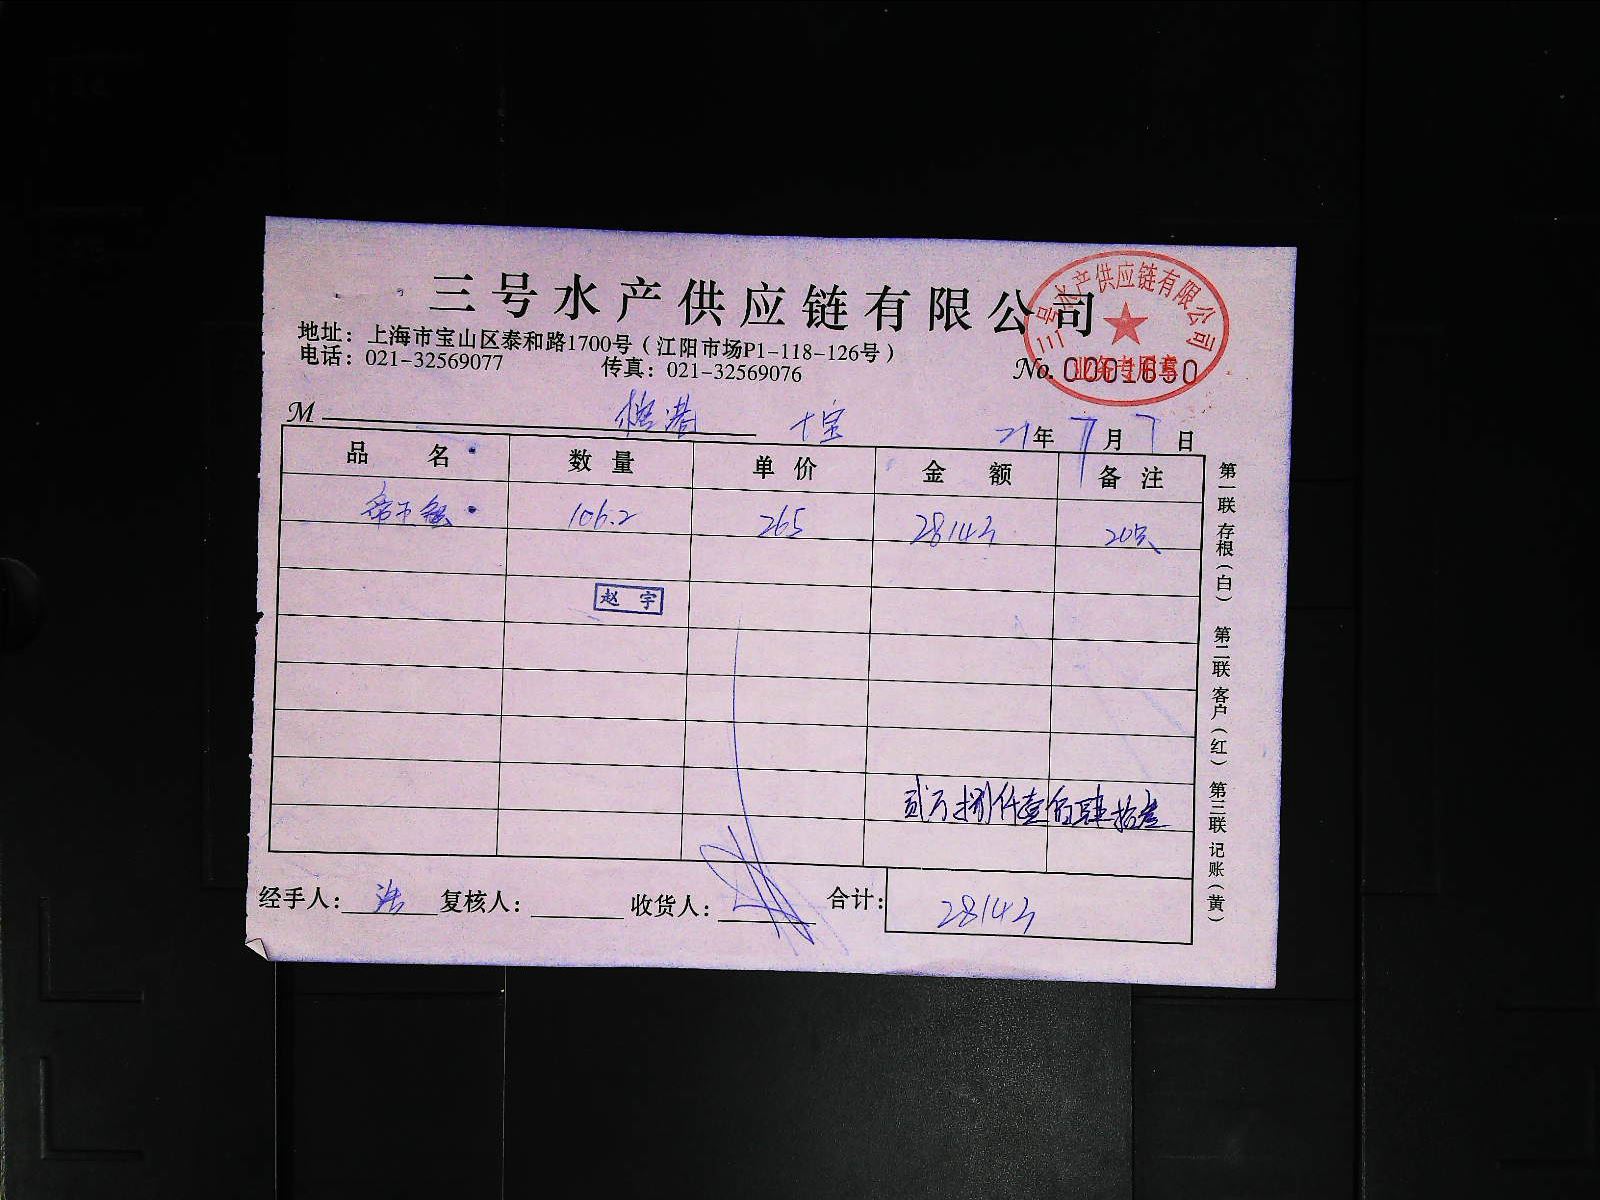 三号水产供应链有限公司
地址：上海市宝山区泰和路1700号（江阳市场P1-118-126号）
电话：021-32569077 传真：021-32569076
No. 0001650
三号水产供应链有限公司
业务专用章
M 十宝 21年 7月 7日
品名 数量 单价 金额 备注
帝王鲑 106.2 265 28143 20只
赵宇
贰万捌仟壹佰肆拾叁
经手人：浩 复核人： 收货人： 合计：28143
第一联 存根（白） 第二联 客户（红） 第三联 记账（黄）